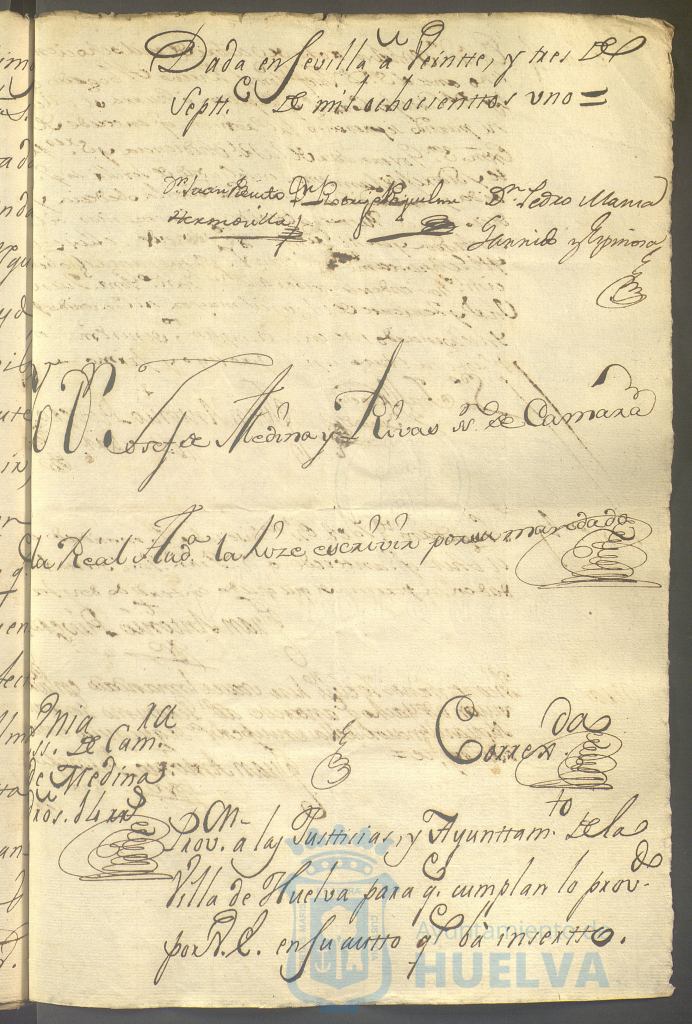 Dada en Sevilla a Veintte, y tres De
Septt.e De mil ochocienttos uno =
Dn. Juan Benito Dn. Rodrigo Riquelme Dn. Pedro Maria
Hermosilla
Garrido y Espinosa
Yo Dn. Josef de Medina y Rivas ss.no de Camara
la Real Auda. la hize escrivir por su mandado
ss. De Cam.
de Medina
Corregda.
Provon. a las Justticias, y Ayunttamto. De la
Villa de Huelva para qe. cumplan lo provdo.
por V.E. en su autto qe. va insertto.
Ayuntamiento de
HUELVA